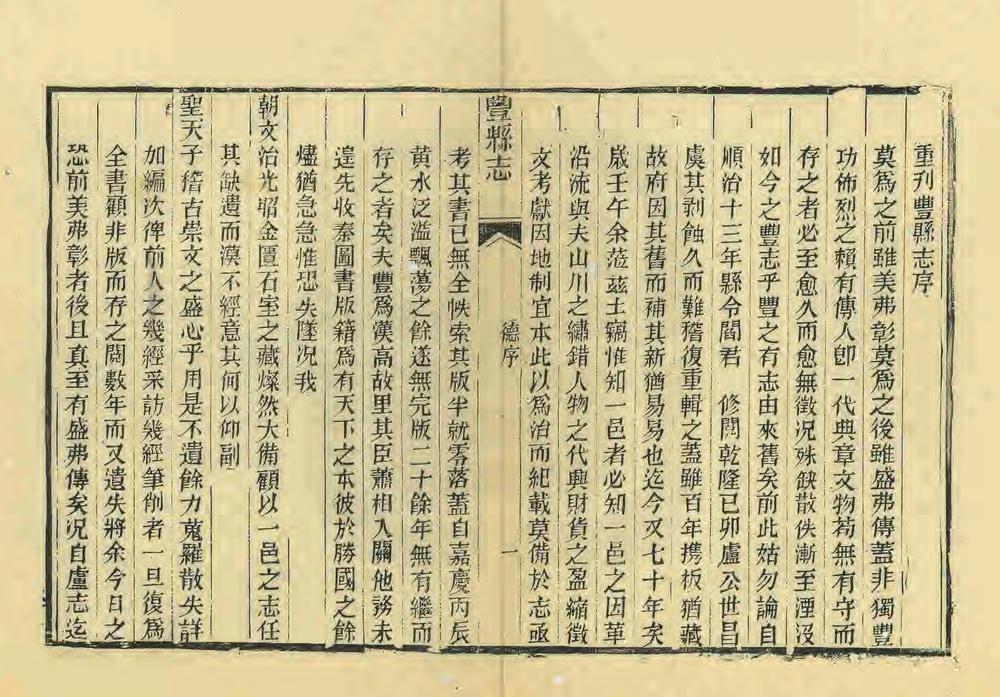 重刊豐縣志序
莫爲之前雖美弗彰莫爲之後雖盛弗傳蓋非獨豐
功佈烈之賴有傳人卽一代典章文物苟無有守而
存之者必至愈久而愈無徵況殊缺散佚漸至湮沒
如今之豐志乎豐之有志由來舊矣前此姑勿論自
順治十三年縣令閻君　修閱乾隆己卯盧公世昌
虞其剥蝕久而難稽復重輯之蓋雖百年攜板猶藏
故府因其舊而補其新猶易易也迄今又七十年矣
歲壬午余蒞茲土竊惟知一邑者必知一邑之因革
沿流與夫山川之繡錯人物之代興財貨之盈縮徵
文考獻因地制宜本此以爲治而紀載莫備於志亟
豐縣志
德序
一
考其書已無全帙索其版半就零落蓋自嘉慶丙辰
黃水泛濫飄蕩之餘遂無完版二十餘年無有繼而
存之者矣夫豐爲漢高故里其臣蕭相入關他務未
遑先收秦圖書版籍爲有天下之本彼於勝國之餘
燼猶急急惟恐失墜況我
朝文治光昭金匱石室之藏燦然大備顧以一邑之志任
其缺遺而漠不經意其何以仰副
聖天子稽古崇文之盛心乎用是不遺餘力蒐羅散失詳
加編次俾前人之幾經采訪幾經筆削者一旦復爲
全書顧非版而存之閱數年而又遺失將余今日之
恐前美弗彰者後且真至有盛弗傳矣況自盧志迄